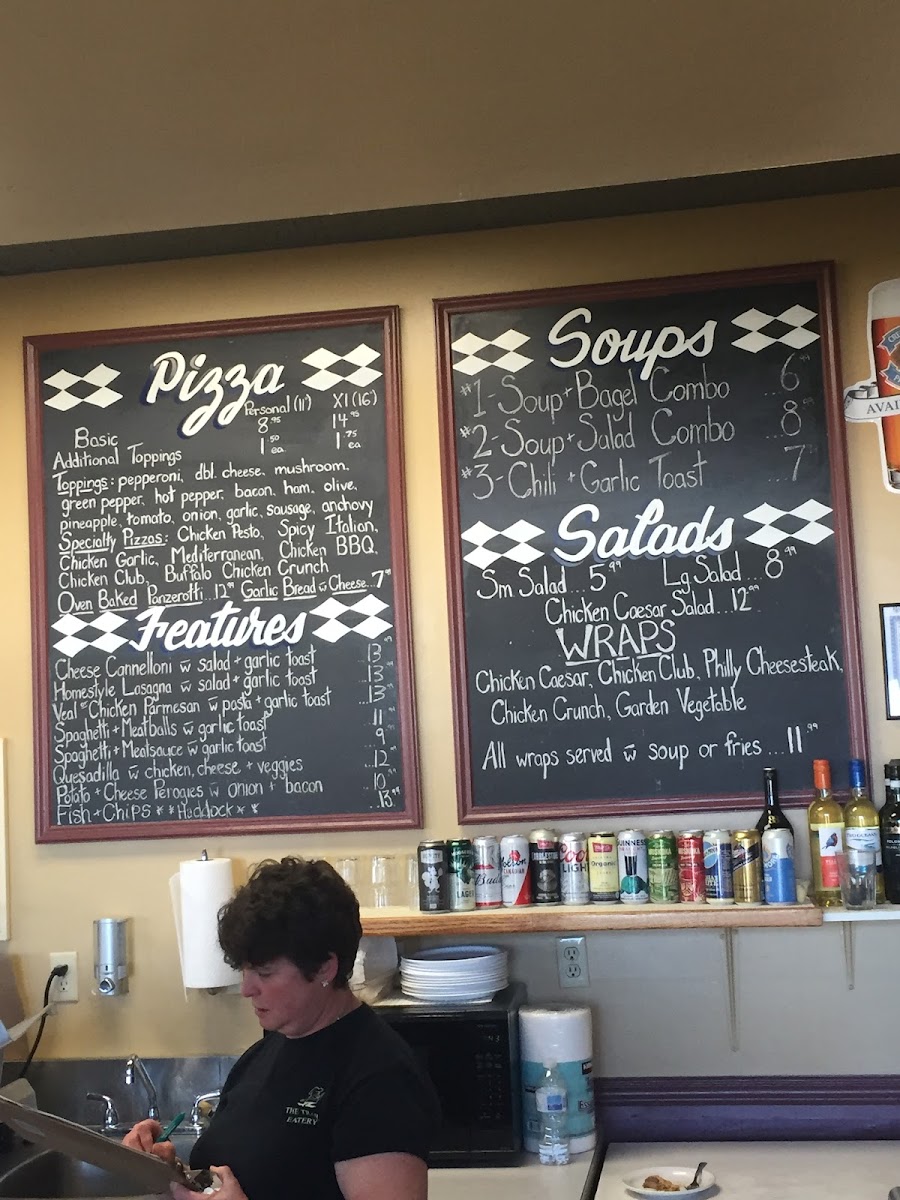 Pizza
Personal (11") Xl (16")
Basic 8.95 14.95
Additional Toppings 1.50 ea. 1.75 ea
Toppings: pepperoni, dbl. cheese, mushroom.
green pepper, hot pepper, bacon, ham, olive,
pineapple, tomato, onion, garlic, sausage, anchovy
Specialty Pizzas: Chicken Pesto, Spicy Italian,
Chicken Garlic, Mediterranean, Chicken BBQ,
Chicken Club, Buffalo Chicken Crunch
Oven Baked Panzerotti...12.99 Garlic Bread w̄ Cheese...7.99
Features
Cheese Cannelloni w̄ salad + garlic toast ...13.99
Homestyle Lasagna w̄ salad + garlic toast ...13
Veal or Chicken Parmesan w̄ pasta + garlic toast ...13
Spaghetti + Meatballs w̄ garlic toast 11
Spaghetti + Meatsauce w̄ garlic toast ...9
Quesadilla w̄ chicken, cheese + veggies ...12
Potato + Cheese Perogies w̄ onion + bacon ...10
Fish + Chips * * Haddock * * ...13.99
Soups
#1 - Soup + Bagel Combo ...6.99
#2 - Soup + Salad Combo ...8.99
#3 - Chili + Garlic Toast ...7
Salads
Sm Salad...5.99 Lg Salad...8.99
Chicken Caesar Salad...12.99
WRAPS
Chicken Caesar, Chicken Club, Philly Cheesesteak,
Chicken Crunch, Garden Vegetable
All wraps served w̄ soup or fries...11.99
AVAI
LAGER
Bud
Molson
CANADIAN
Coors
LIGHT
Organic
GUINNESS
THE
EATERY